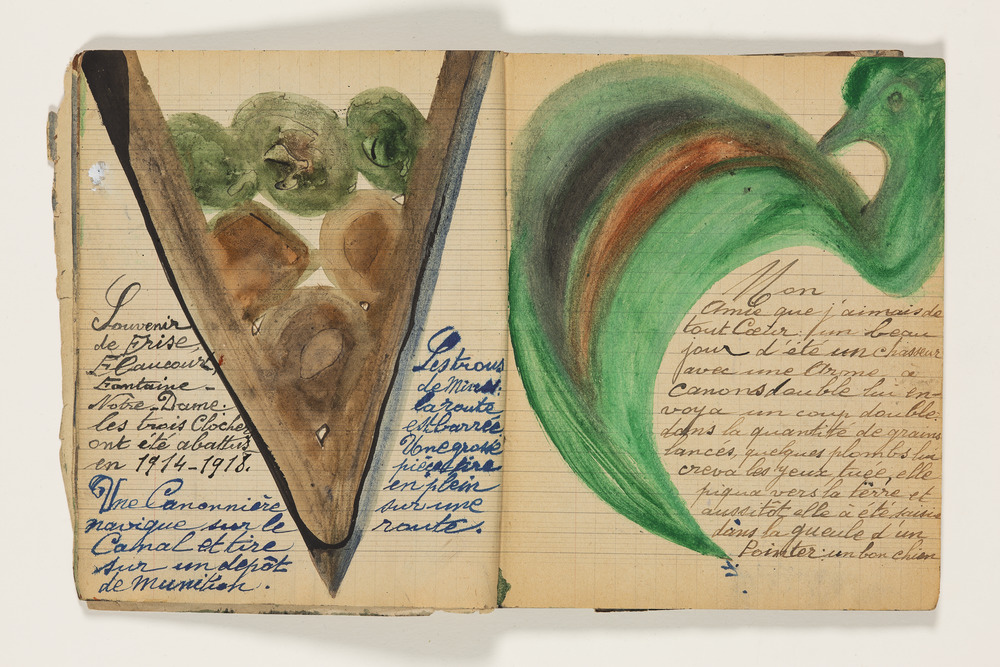 Souvenir
de Frise,
Flaucourt,
Fontaine -
Notre-Dame.
les trois Cloches
ont été abattus
en 1914-1918.
Une Canonnière
navigue sur le
Canal et tire
sur un dépôt
de Munition.
Les trous
de Mines:
la route
est barrée
Une grosse
pièce tire
en plein
sur une
route.
Mon
Amie que j'aimais de
tout Cœur: un beau
jour d'été un chasseur
avec une Arme à
canons double lui en-
voya un coup double:
dans la quantité de grains
lancés, quelques plombs lui
creva les yeux tuée, elle
piqua vers la terre et
aussitôt elle à été saisie
dans la gueule d'un
Pointer: un bon chien